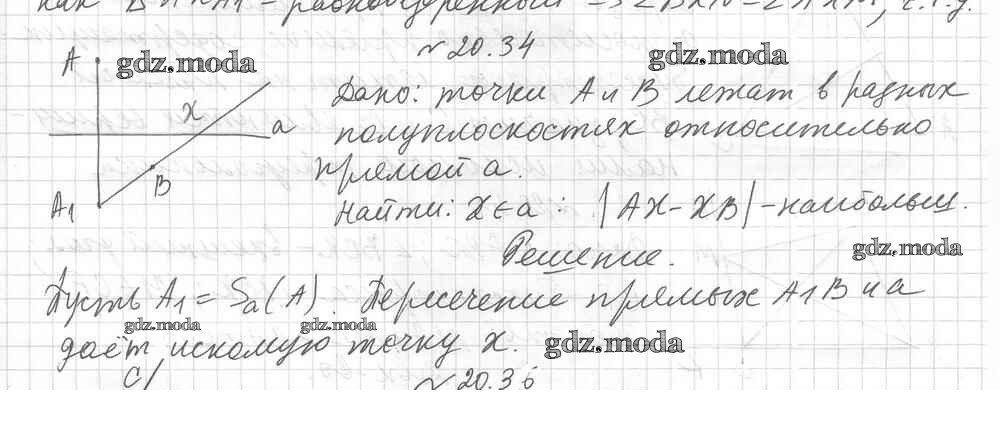 как Δ - равнобедренный
№ 20.34
A
gdz.moda
gdz.moda
X
a
B
A1
Дано: точки A и B лежат в разных
полуплоскостях относительно
прямой a.
Найти: X∈a : |AX-XB|-наибольш.
Решение.
gdz.moda
Пусть A1 = Sa(A). Пересечение прямых A1B и a
gdz.moda
gdz.moda
даёт искомую точку X.
gdz.moda
№ 20.36